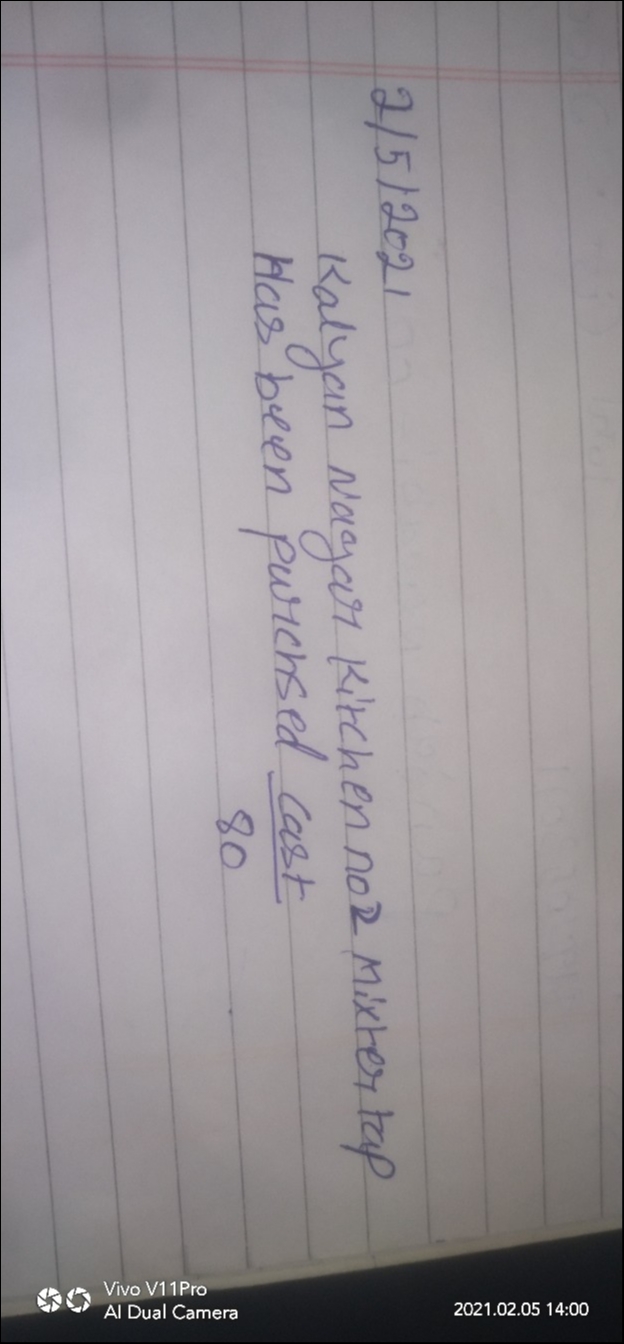 2/5/2021
Kalyan Nagar Kitchen no2 Mixter tap
Has been purchsed Cast
80
Vivo V11Pro
AI Dual Camera
2021.02.05 14:00